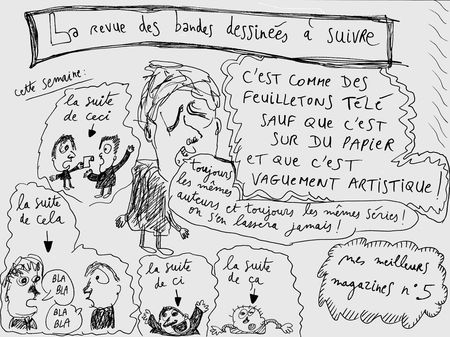 La revue des bandes dessinées à suivre
cette semaine :
la suite
de ceci
C'EST COMME DES
FEUILLETONS TÉLÉ
SAUF QUE C'EST
SUR DU PAPIER
ET QUE C'EST
VAGUEMENT ARTISTIQUE !
toujours
les mêmes
auteurs et toujours les mêmes séries !
on s'en lassera jamais !
la suite
de cela
BLA
BLA
BLA
BLA
la suite
de ci
la suite
de ça
mes meilleurs
magazines n°5